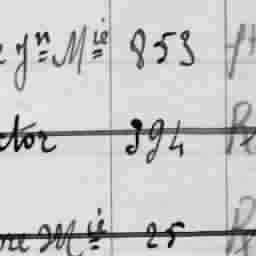 Jⁿ Mⁱᵉ 853
ctor 394
re Mⁱᵉ 25